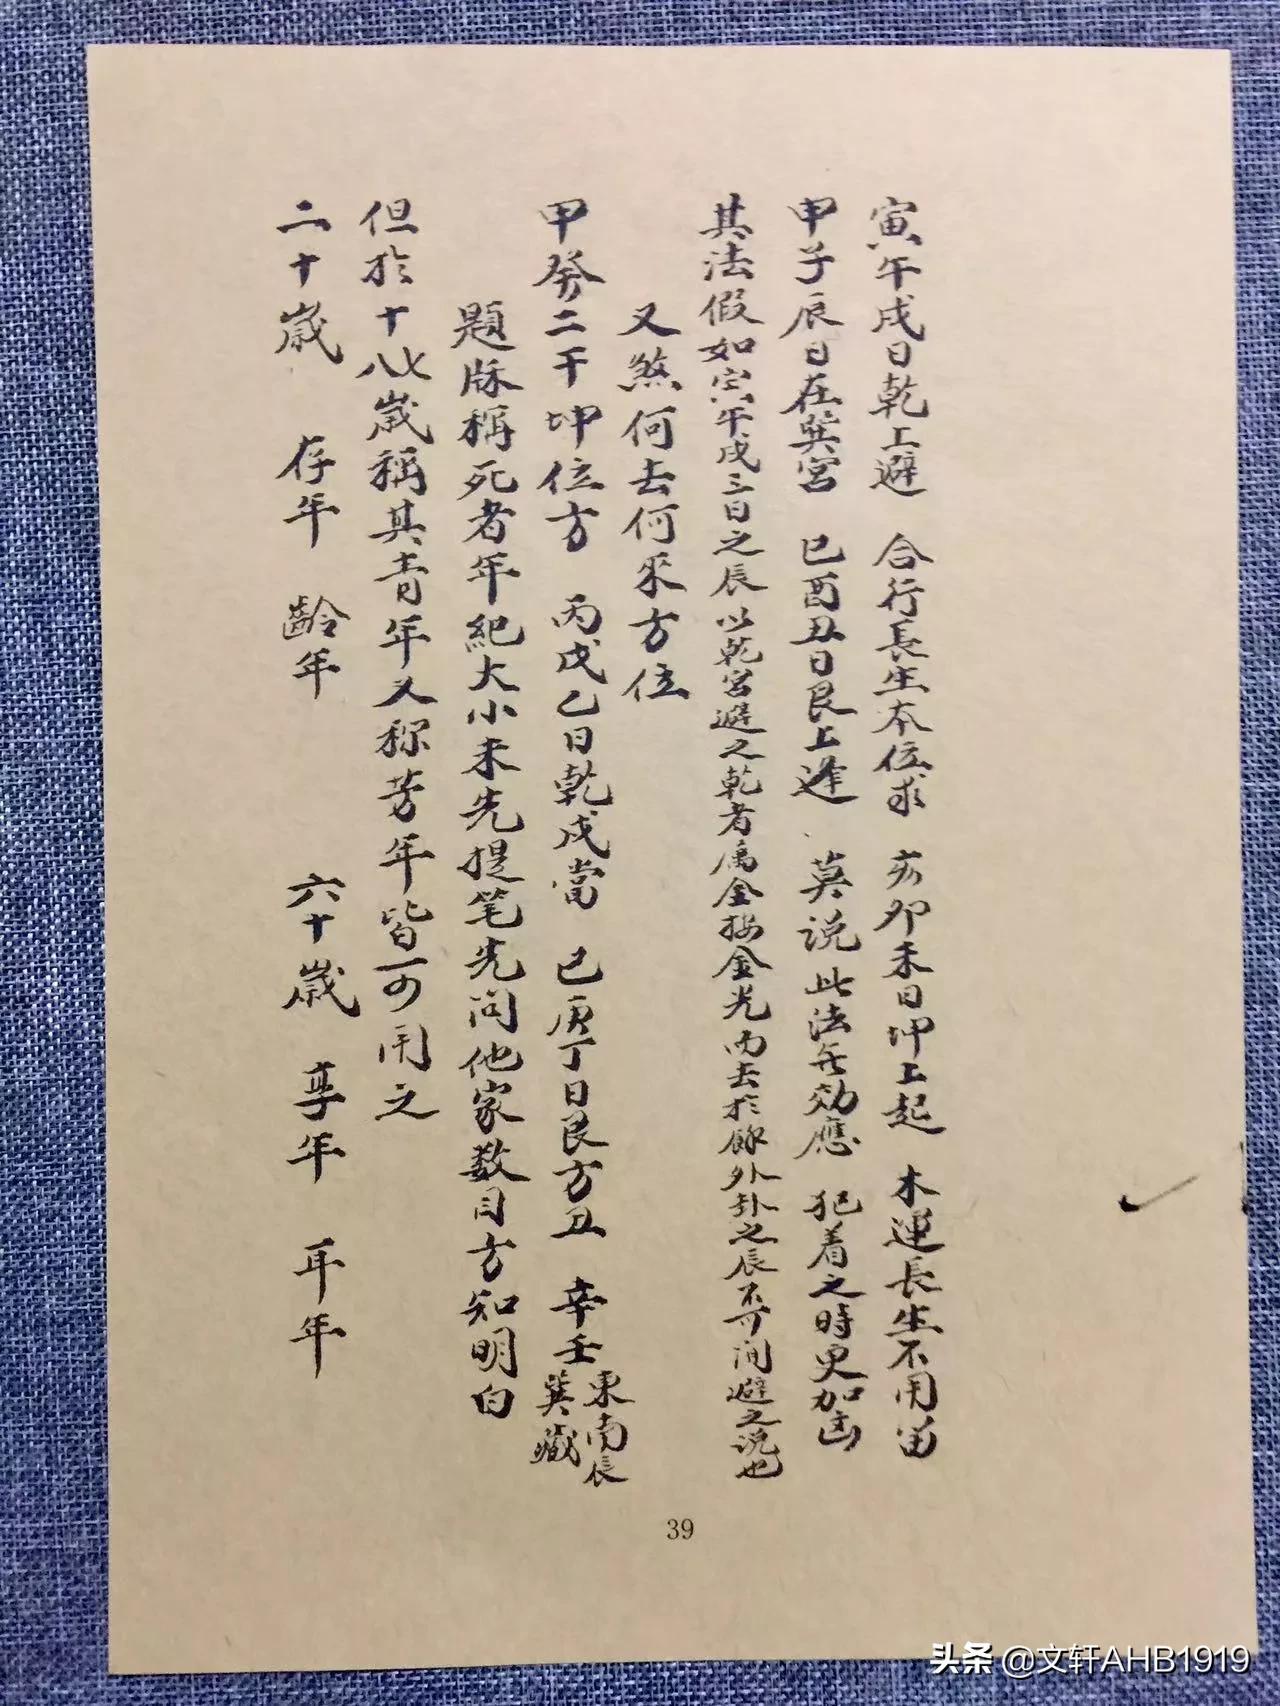 寅午戌日乾上避　合行長生本位求　亥卯未日坤上起　木運長生不用留
申子辰日在巽宮　巳酉丑日艮上逢　莫说此法无効應　犯着之時更加凶
其法假如寅午戌三日之辰以乾宮避之乾者属金按金光而去於餘外卦之辰不可间避之说也
又煞何去何来方位
甲癸二干坤位方　丙戊乙日乾戌當　己庚丁日艮方丑　辛壬東南辰巽藏
題脉稱死者年紀大小未先提笔先问他家数目方知明白
但於十七八歲稱其青年又称芳年皆可用之
二十歲　存年　齡年　六十歲　享年　耳年
39
头条@文轩AHB1919